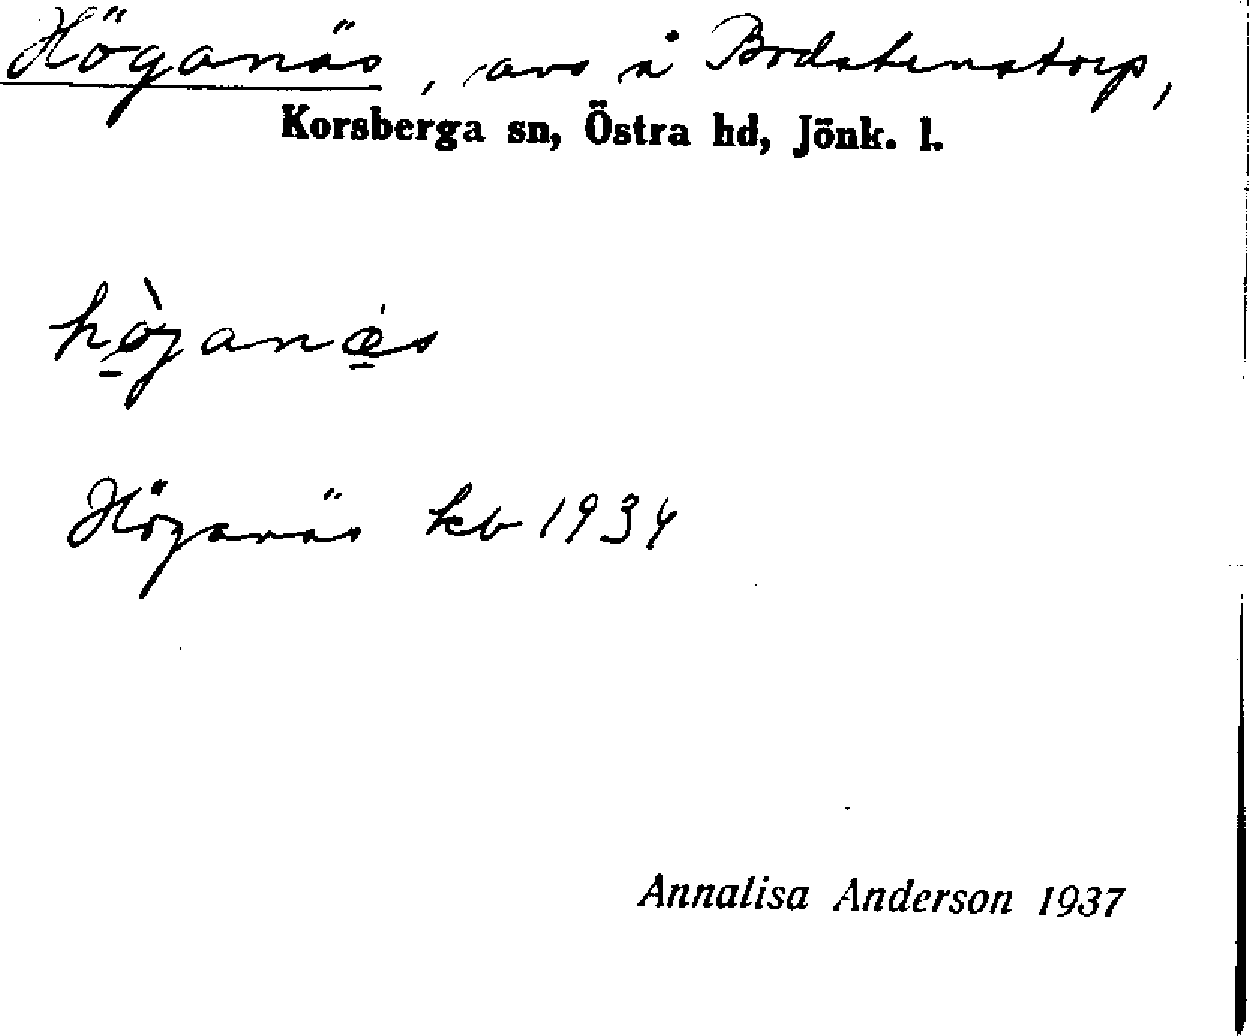 Höganäs, avs å Bodstenstorp,
Korsberga sn, Östra hd, Jönk. l.
hö̀ganǽs
Höganäs kb 1934
Annalisa Anderson 1937